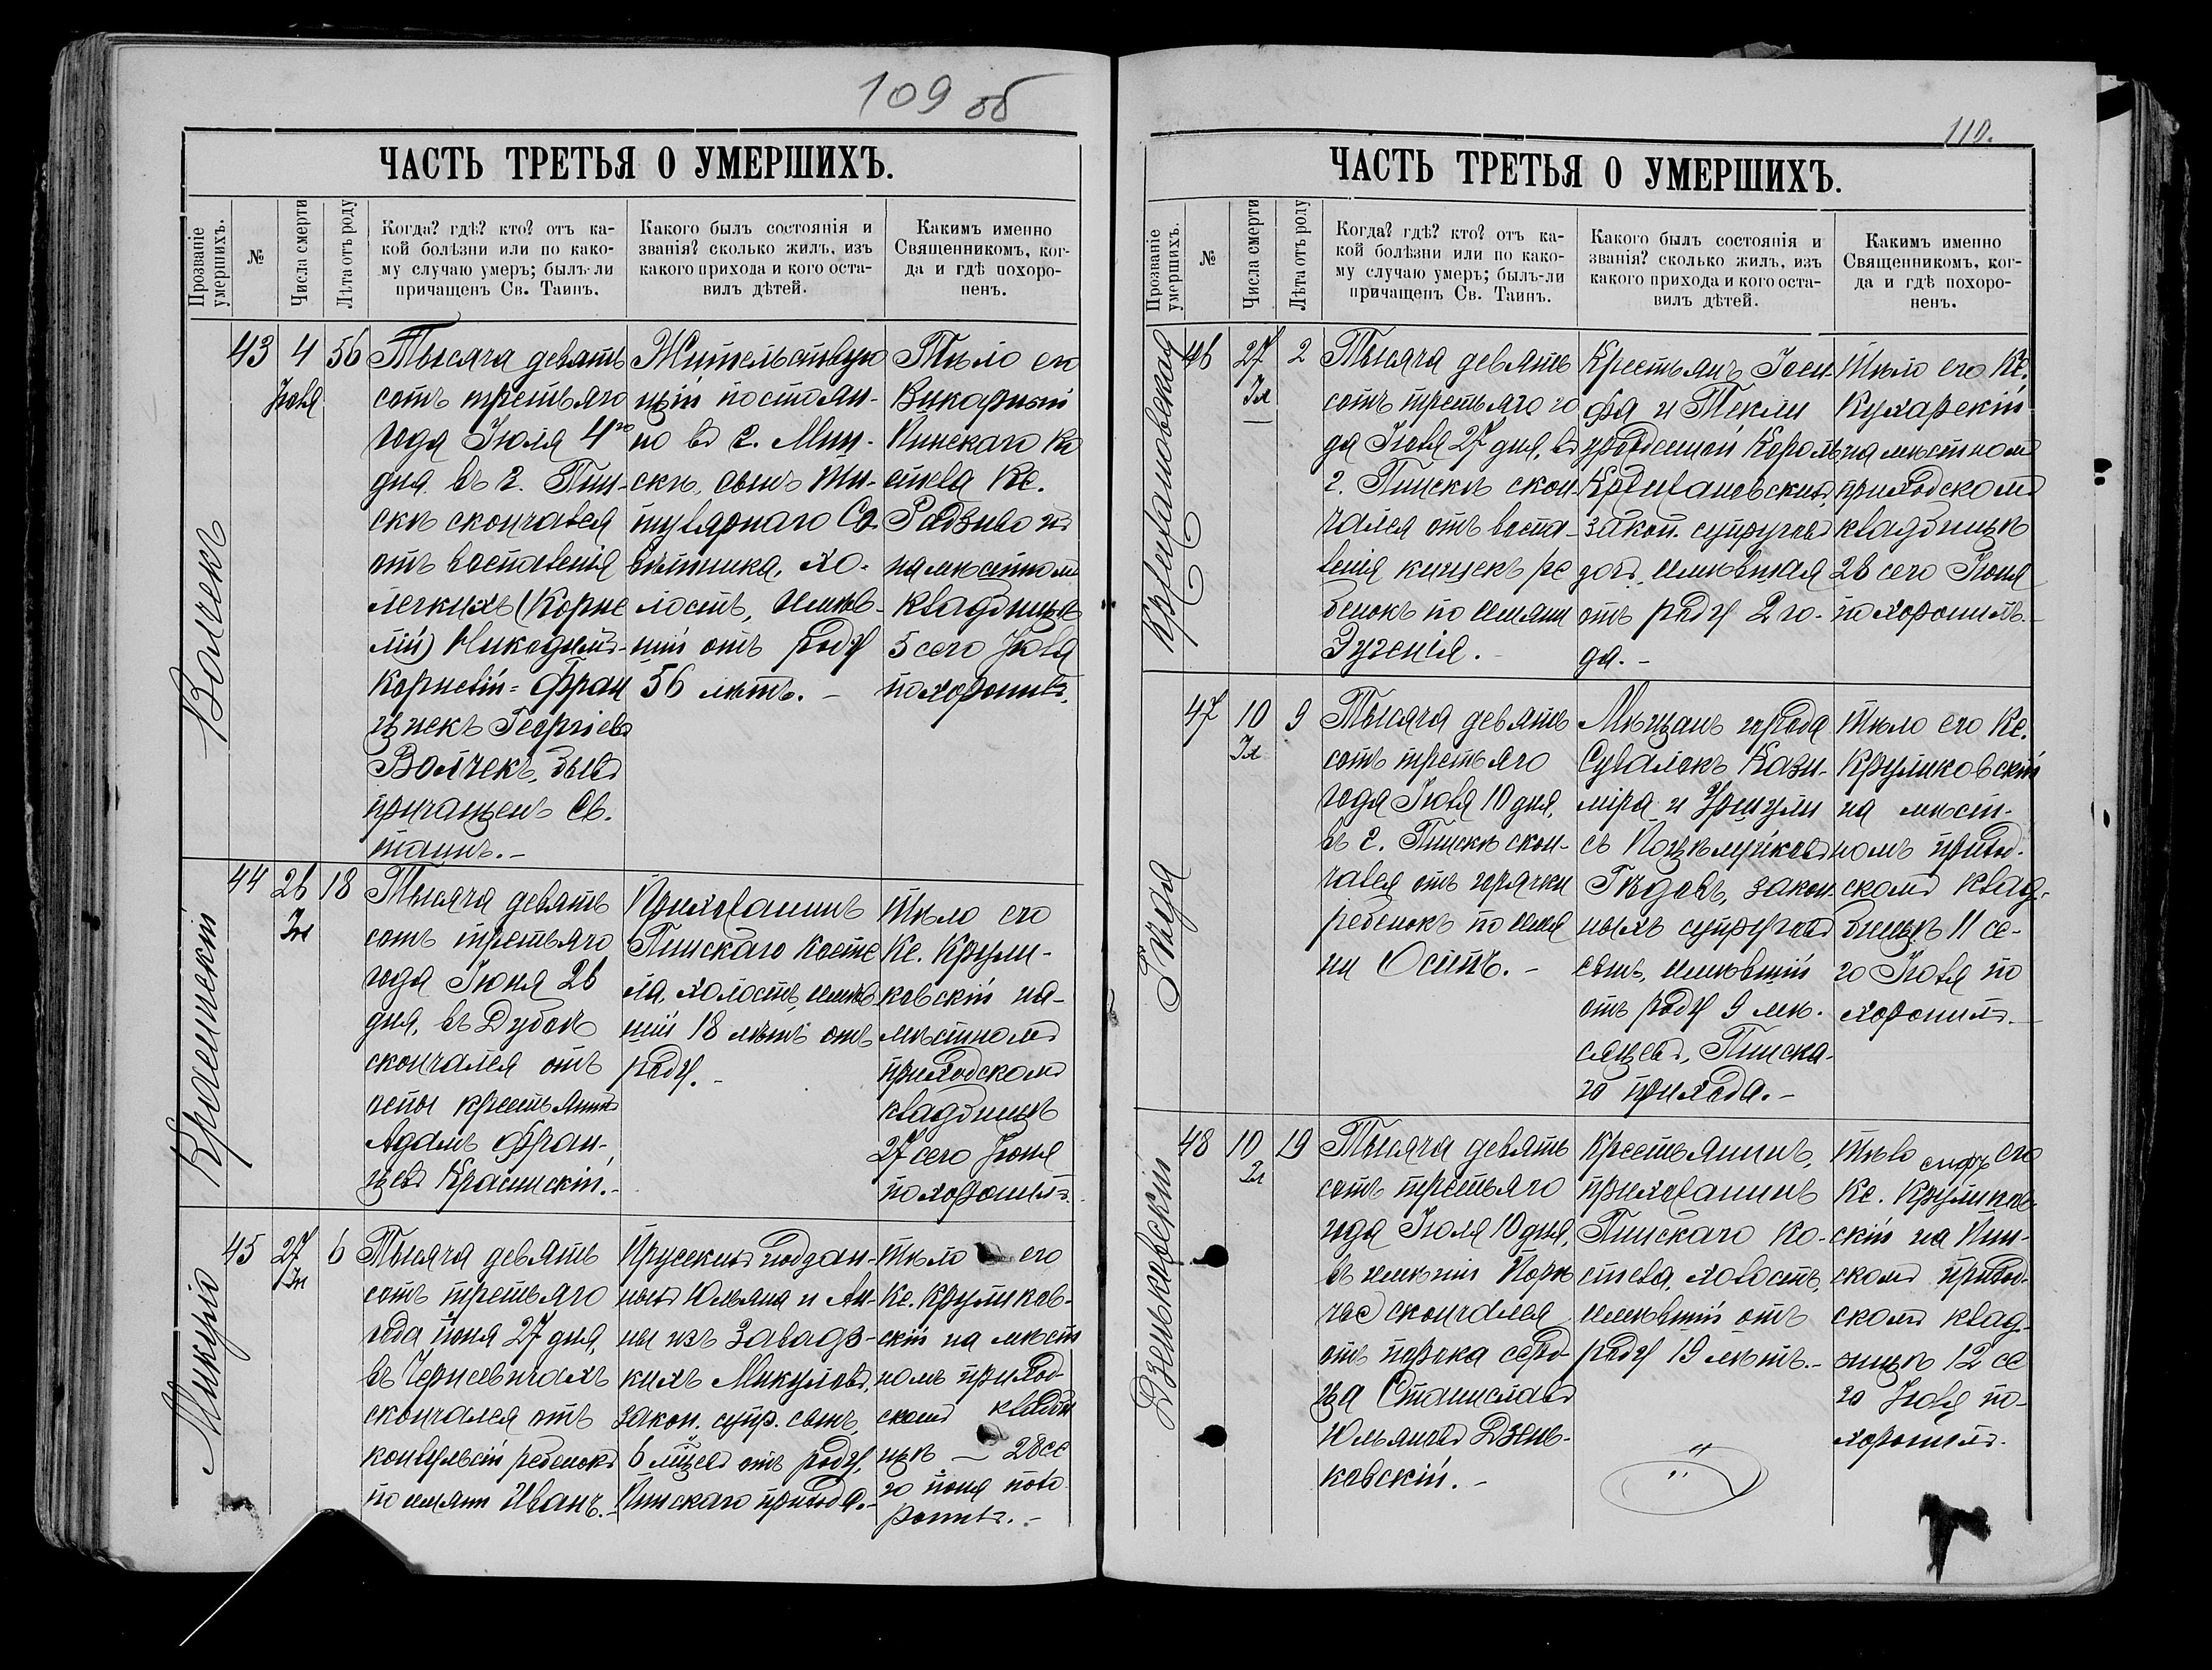 109 об
ЧАСТЬ ТРЕТЬЯ О УМЕРШИХЪ.
Прозваніе умершихъ.
№
Числа смерти
Лѣта отъ роду
Когда? гдѣ? кто? отъ ка-
кой болѣзни или по како-
му случаю умеръ; былъ-ли
причащенъ Св. Таинъ.
Какого былъ состоянія и
званія? сколько жилъ, изъ
какого прихода и кого оста-
вилъ дѣтей.
Какимъ именно
Священникомъ, ког-
да и гдѣ похоро-
ненъ.
Волчекъ
43
4
Іюля
56
Тысяча девять
сотъ третьяго
года Іюля 4го
дня въ г. Пин-
скѣ скончался
отъ воспаленія
легкихъ (Корне
лій) Никодимъ-
Корнелій-Фран
цискъ Георгіевъ
Волчекъ, былъ
причащенъ Св.
таинъ.-
Жительствую
щій постоян-
но въ г. Мин-
скѣ, сынъ Ти-
тулярнаго Со-
вѣтника, хо-
лостъ, имѣв-
шій отъ роду
56 лѣтъ.-
Тѣло его
Викарный
Пинскаго Ко
стела Кс.
на мѣстномъ
кладбищѣ
5 сего Іюля
похоронилъ.
Кросинскій
44
26
Ін
18
Тысяча девять
сотъ третьяго
года Іюня 26
дня, въ Дубое
скончался отъ
оспы крестьянинъ
Адамъ Фран-
цевъ Красинскій.-
Прихожанинъ
Пинскаго косте
ла, холостъ, имѣв
шій 18 лѣтъ отъ
роду.-
Тѣло его
Кс. Крули-
ковскій на-
мѣстномъ
приходскомъ
кладбищѣ
27 сего Іюня
похоронилъ.-
Микуло
45
27
Ін
6
Тысяча девять
сотъ третьяго
года іюня 27 дня,
въ Чернеевичахъ
скончался отъ
конвульсій ребенокъ
по имяни Иванъ.-
Прусскихъ поддан-
ныхъ Юльяна и Ан-
ны изъ Завадз-
кихъ Микуловъ,
закон. супр. сынъ,
6 мцевъ отъ роду,
Пинскаго прихода.-
Тѣло его
Кс. Круликов-
скій на мѣст
номъ приход-
скомъ кладби
щѣ - 28 се
го іюня похо
ронилъ.-
110.
ЧАСТЬ ТРЕТЬЯ О УМЕРШИХЪ.
Прозваніе умершихъ.
№
Числа смерти
Лѣта отъ роду
Когда? гдѣ? кто? отъ ка-
кой болѣзни или по како-
му случаю умеръ; былъ-ли
причащенъ Св. Таинъ.
Какого былъ состоянія и
званія? сколько жилъ, изъ
какого прихода и кого оста-
вилъ дѣтей.
Какимъ именно
Священникомъ, ког-
да и гдѣ похоро-
ненъ.
46
27
Іл
2
Тысяча девять
сотъ третьяго го
да Іюля 27 дня, въ
г. Пинскѣ скон-
чался отъ воспа-
ленія кишекъ ре
бенокъ по имяни
Эугенія.-
Крестьянъ Іоси-
фа и Текли
урожденной Король
закон. супруговъ
дочь, имѣвшая
отъ роду 2 го-
да.-
Тѣло его Кс.
Кухарскій
на мѣстномъ
приходскомъ
кладбищѣ
28 сего Іюня
похоронилъ.-
Гѣдя
47
10
Іл
9
Тысяча девять
сотъ третьяго
года Іюля 10 дня,
въ г. Пинскѣ скон-
чался отъ горячки
ребенокъ по имя
ни Осипъ.-
Мѣщанъ города
Сувалокъ Кази-
міра и Уршули
съ
Гѣдовъ, закон-
ныхъ супруговъ
сынъ, имѣвшій
отъ роду 9 мѣ-
сяцевъ, Пинска-
го прихода.-
Тѣло его Кс.
Круликовскій
на мѣст-
номъ приход-
скомъ клад-
бищѣ 11 се-
го Іюля по
хоронилъ.-
Дзеньковскій
48
10
Іл
19
Тысяча девять
сотъ третьяго
года Іюля 10 дня,
въ имѣніи Порѣ
чье скончался
отъ порока серд-
ца Станиславъ
Юльяновъ Дзень-
ковскій.-
Крестьянинъ,
прихожанинъ
Пинскаго Ко-
стела, холостъ,
имѣвшій отъ
роду 19 лѣтъ.-
Тѣло его
Кс. Круликов-
скій на Пин-
скомъ приход-
скомъ клад-
бищѣ 12 се
го Іюля по-
хоронилъ.